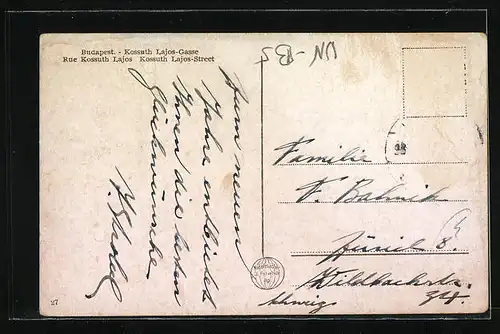 Budapest. - Kossuth Lajos-Gasse
Rue Kossuth Lajos Kossuth Lajos-Street
Zum neuen
Jahre entbietet
Ihnen die besten
Glückwünsche
Familie
F. Bahnik
Zürich 8.
Wildbachstr.
Schweiz
27